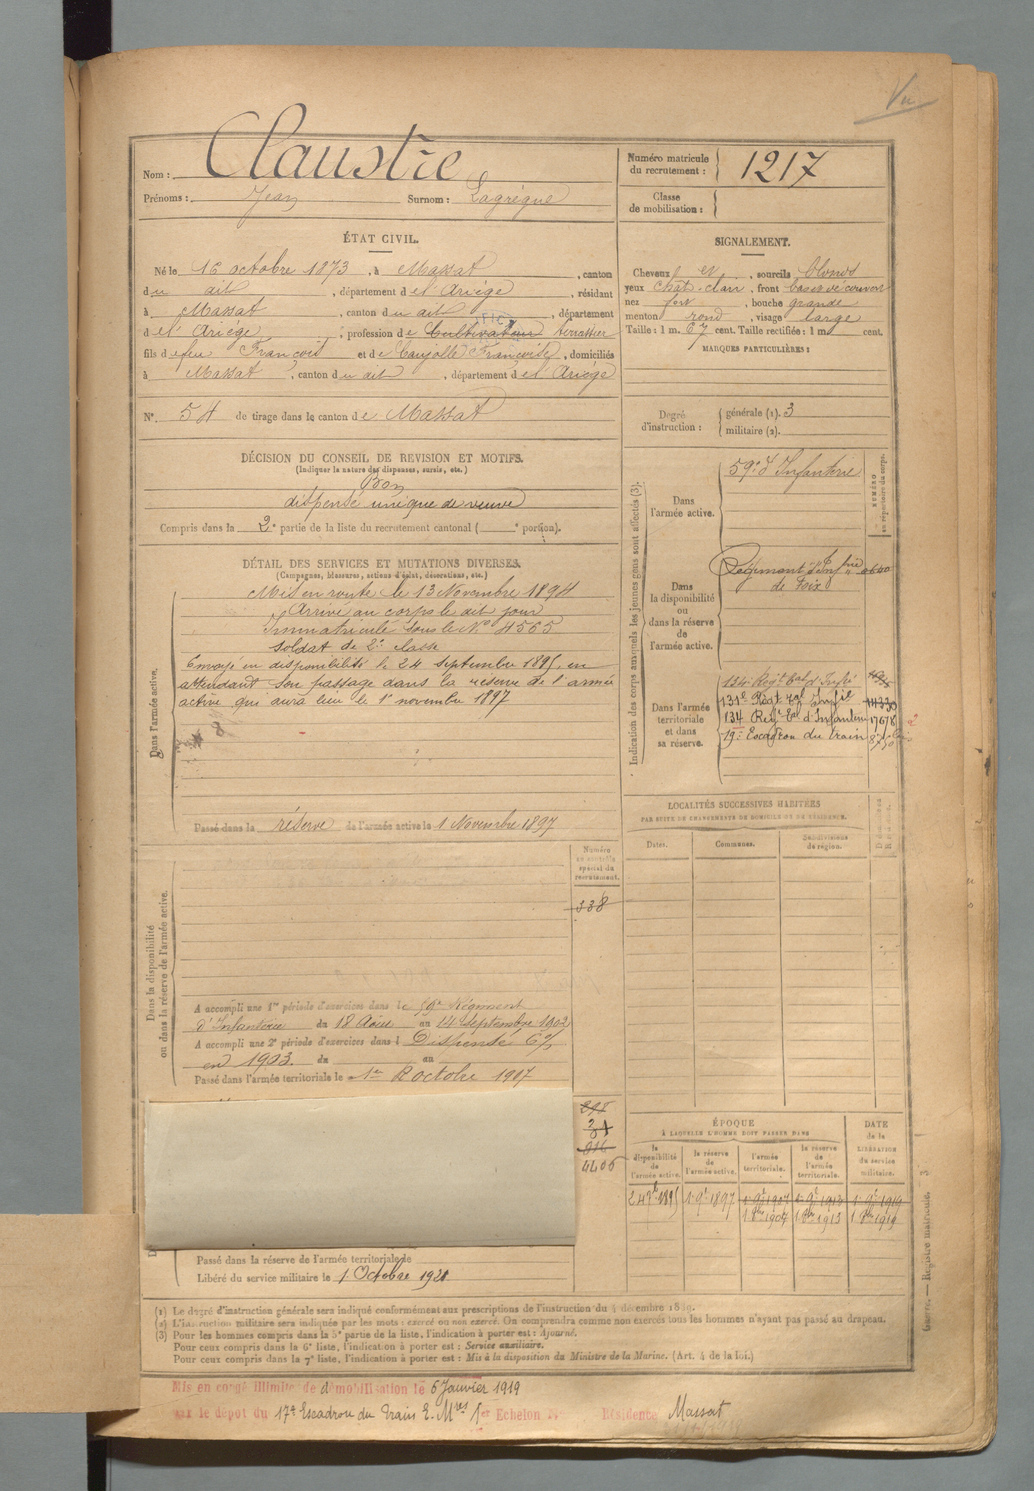 Vu
Nom : Claustre
Prénoms : Jean Surnom : Lagrègue
Numéro matricule du recrutement : 1217
Classe de mobilisation :
ÉTAT CIVIL.
Né le 16 octobre 1873, à Massat, canton
du dit, département de l'Ariège, résidant
à Massat, canton du dit, département
de l'Ariège, profession de Cultivateur terrassier
fils de feu François et de Maujolle Françoise, domiciliés
à Massat, canton du dit, département de l'Ariège
N° 54 de tirage dans le canton de Massat
SIGNALEMENT.
Cheveux et, sourcils blonds
yeux chât. clair, front bas et découvert
nez fort, bouche grande
menton rond, visage large
Taille : 1 m. 67 cent. Taille rectifiée : 1 m. cent.
MARQUES PARTICULIÈRES :
Degré d'instruction : générale (1). 3
militaire (2).
DÉCISION DU CONSEIL DE REVISION ET MOTIFS.
(Indiquer la nature des dispenses, sursis, etc.)
Bon
dispensé unique de veuve
Compris dans la 2e partie de la liste du recrutement cantonal ( e portion).
DÉTAIL DES SERVICES ET MUTATIONS DIVERSES.
(Campagnes, blessures, actions d'éclat, décorations, etc.)
Dans l'armée active.
Mis en route le 13 Novembre 1894
Arrivé au corps le dit jour
Immatriculé sous le N° 4565
soldat de 2e classe
Envoyé en disponibilité le 24 septembre 1895, en
attendant son passage dans la réserve de l'armée
active qui aura lieu le 1er novembre 1897
Passé dans la réserve de l'armée active le 1 Novembre 1897
Indication des corps auxquels les jeunes gens sont affectés (3).
NUMÉRO au répertoire du corps.
Dans l'armée active.
59e d'Infanterie
Dans la disponibilité ou dans la réserve de l'armée active.
Régiment d'Infrie
de Foix
Dans l'armée territoriale et dans sa réserve.
134 Regt tal d'Infie
131e Régt tal Infie 14330
134 Regt tal d'Infanterie 17678
19e Escadron du train
LOCALITÉS SUCCESSIVES HABITÉES
PAR SUITE DE CHANGEMENTS DE DOMICILE OU DE RÉSIDENCE.
Dates. Communes. Subdivisions de région.
Numéro au contrôle spécial du recrutement.
338
Dans la disponibilité ou dans la réserve de l'armée active.
A accompli une 1re période d'exercices dans le 59e Régiment
d'Infanterie du 18 Août au 14 Septembre 1902
A accompli une 2e période d'exercices dans l Dispensé
en 1903. du au
Passé dans l'armée territoriale le 1er octobre 1907
4406
ÉPOQUE
À LAQUELLE L'HOMME DOIT PASSER DANS
la disponibilité de l'armée active. la réserve de l'armée active. l'armée territoriale. la réserve de l'armée territoriale.
DATE de la LIBÉRATION du service militaire.
24 9bre 1895 1 9e 1897 1 9e 1907 1 9e 1913 1 9e 1919
1 8bre 1907 1 8bre 1913 1 8bre 1919
Passé dans la réserve de l'armée territoriale le
Libéré du service militaire le 1 Octobre 1921
(1) Le degré d'instruction générale sera indiqué conformément aux prescriptions de l'instruction du 4 décembre 1889.
(2) L'instruction militaire sera indiquée par les mots : exercé ou non exercé. On comprendra comme non exercés tous les hommes n'ayant pas passé au drapeau.
(3) Pour les hommes compris dans la 5e partie de la liste, l'indication à porter est : Ajourné.
Pour ceux compris dans la 6e liste, l'indication à porter est : Service auxiliaire.
Pour ceux compris dans la 7e liste, l'indication à porter est : Mis à la disposition du Ministre de la Marine. (Art. 4 de la loi.)
Registre matricule.
Mis en congé illimité de démobilisation le 6 Janvier 1919
par le dépôt du 17e Escadron du Train E. Mres 1er Echelon N° Résidence Massat